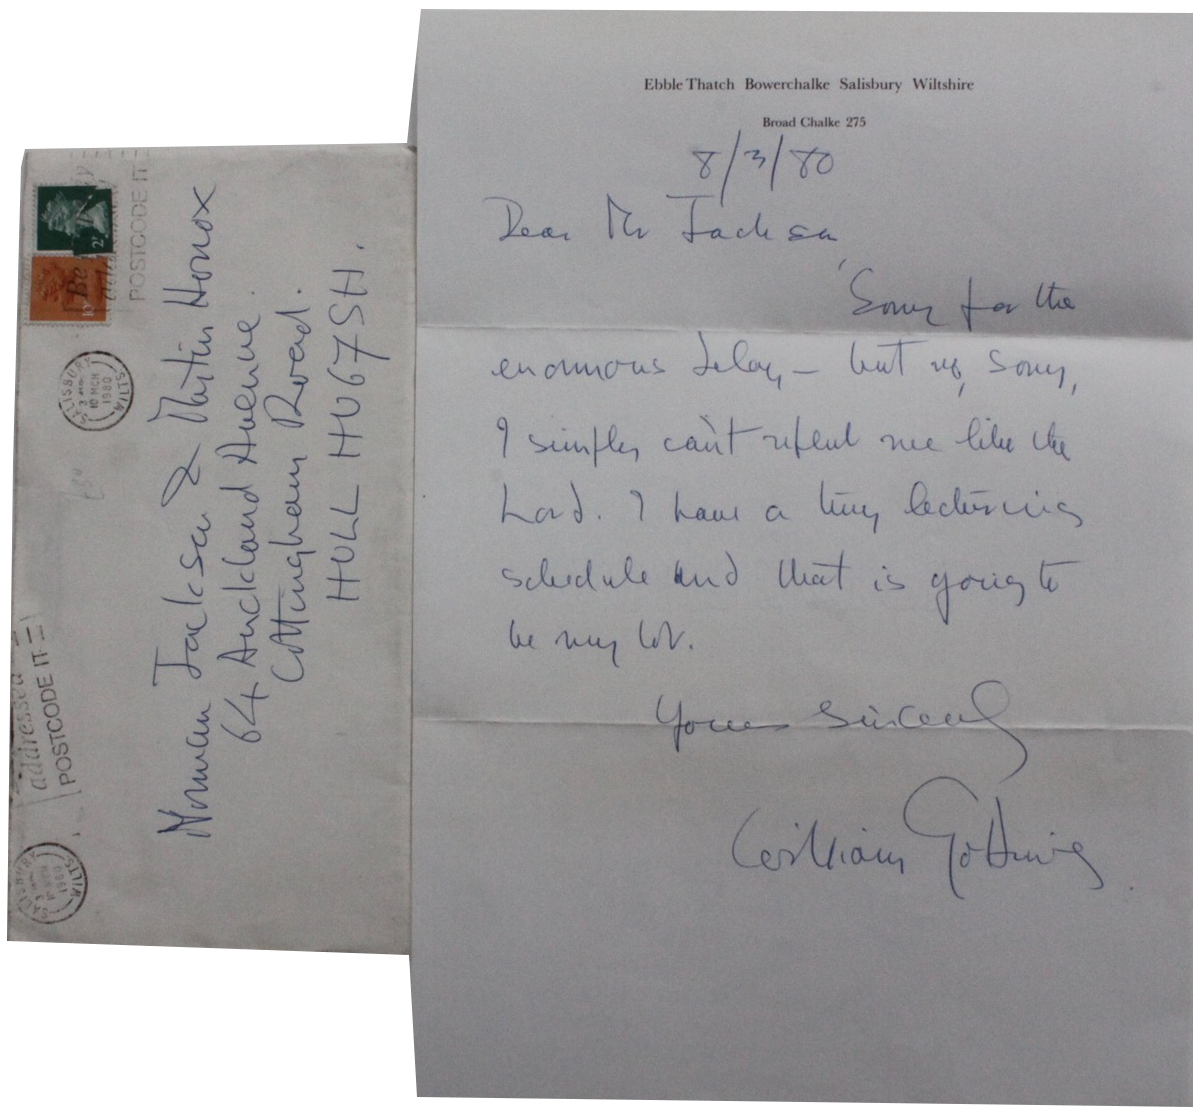 Ebble Thatch Bowerchalke Salisbury Wiltshire
Broad Chalke 275
8/3/80
Dear Mr Jackson,
Sorry for the
enormous delay, – but no, sorry,
I simply can't repeat me like the
Lord. I have a tiny lecturing
schedule and that is going to
be my lot.
Yours sincerely
William Golding
Norman Jackson & Martin Honox
64 Auckland Avenue.
Cottingham Road.
HULL HU67SH.
POSTCODE IT
SALISBURY
10 MCH
1980
WILTS
addressed
POSTCODE IT
SALISBURY
1980
WILTS
Be